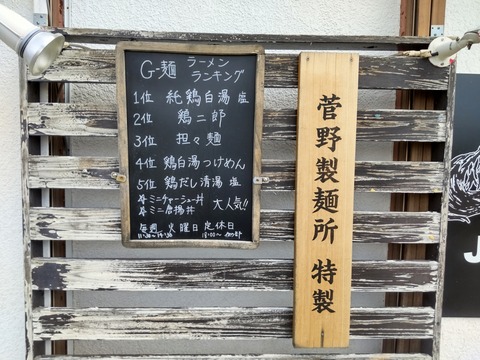 G-麺 ラーメン
ランキング
1位 純鶏白湯 塩
2位 鶏二郎
3位 担々麺
4位 鶏白湯つけめん
5位 鶏だし清湯 塩
☆ミニチャーシュー丼
☆ミニ唐揚丼 大人気!!
毎週 火曜日 定休日
菅野製麺所 特製
J